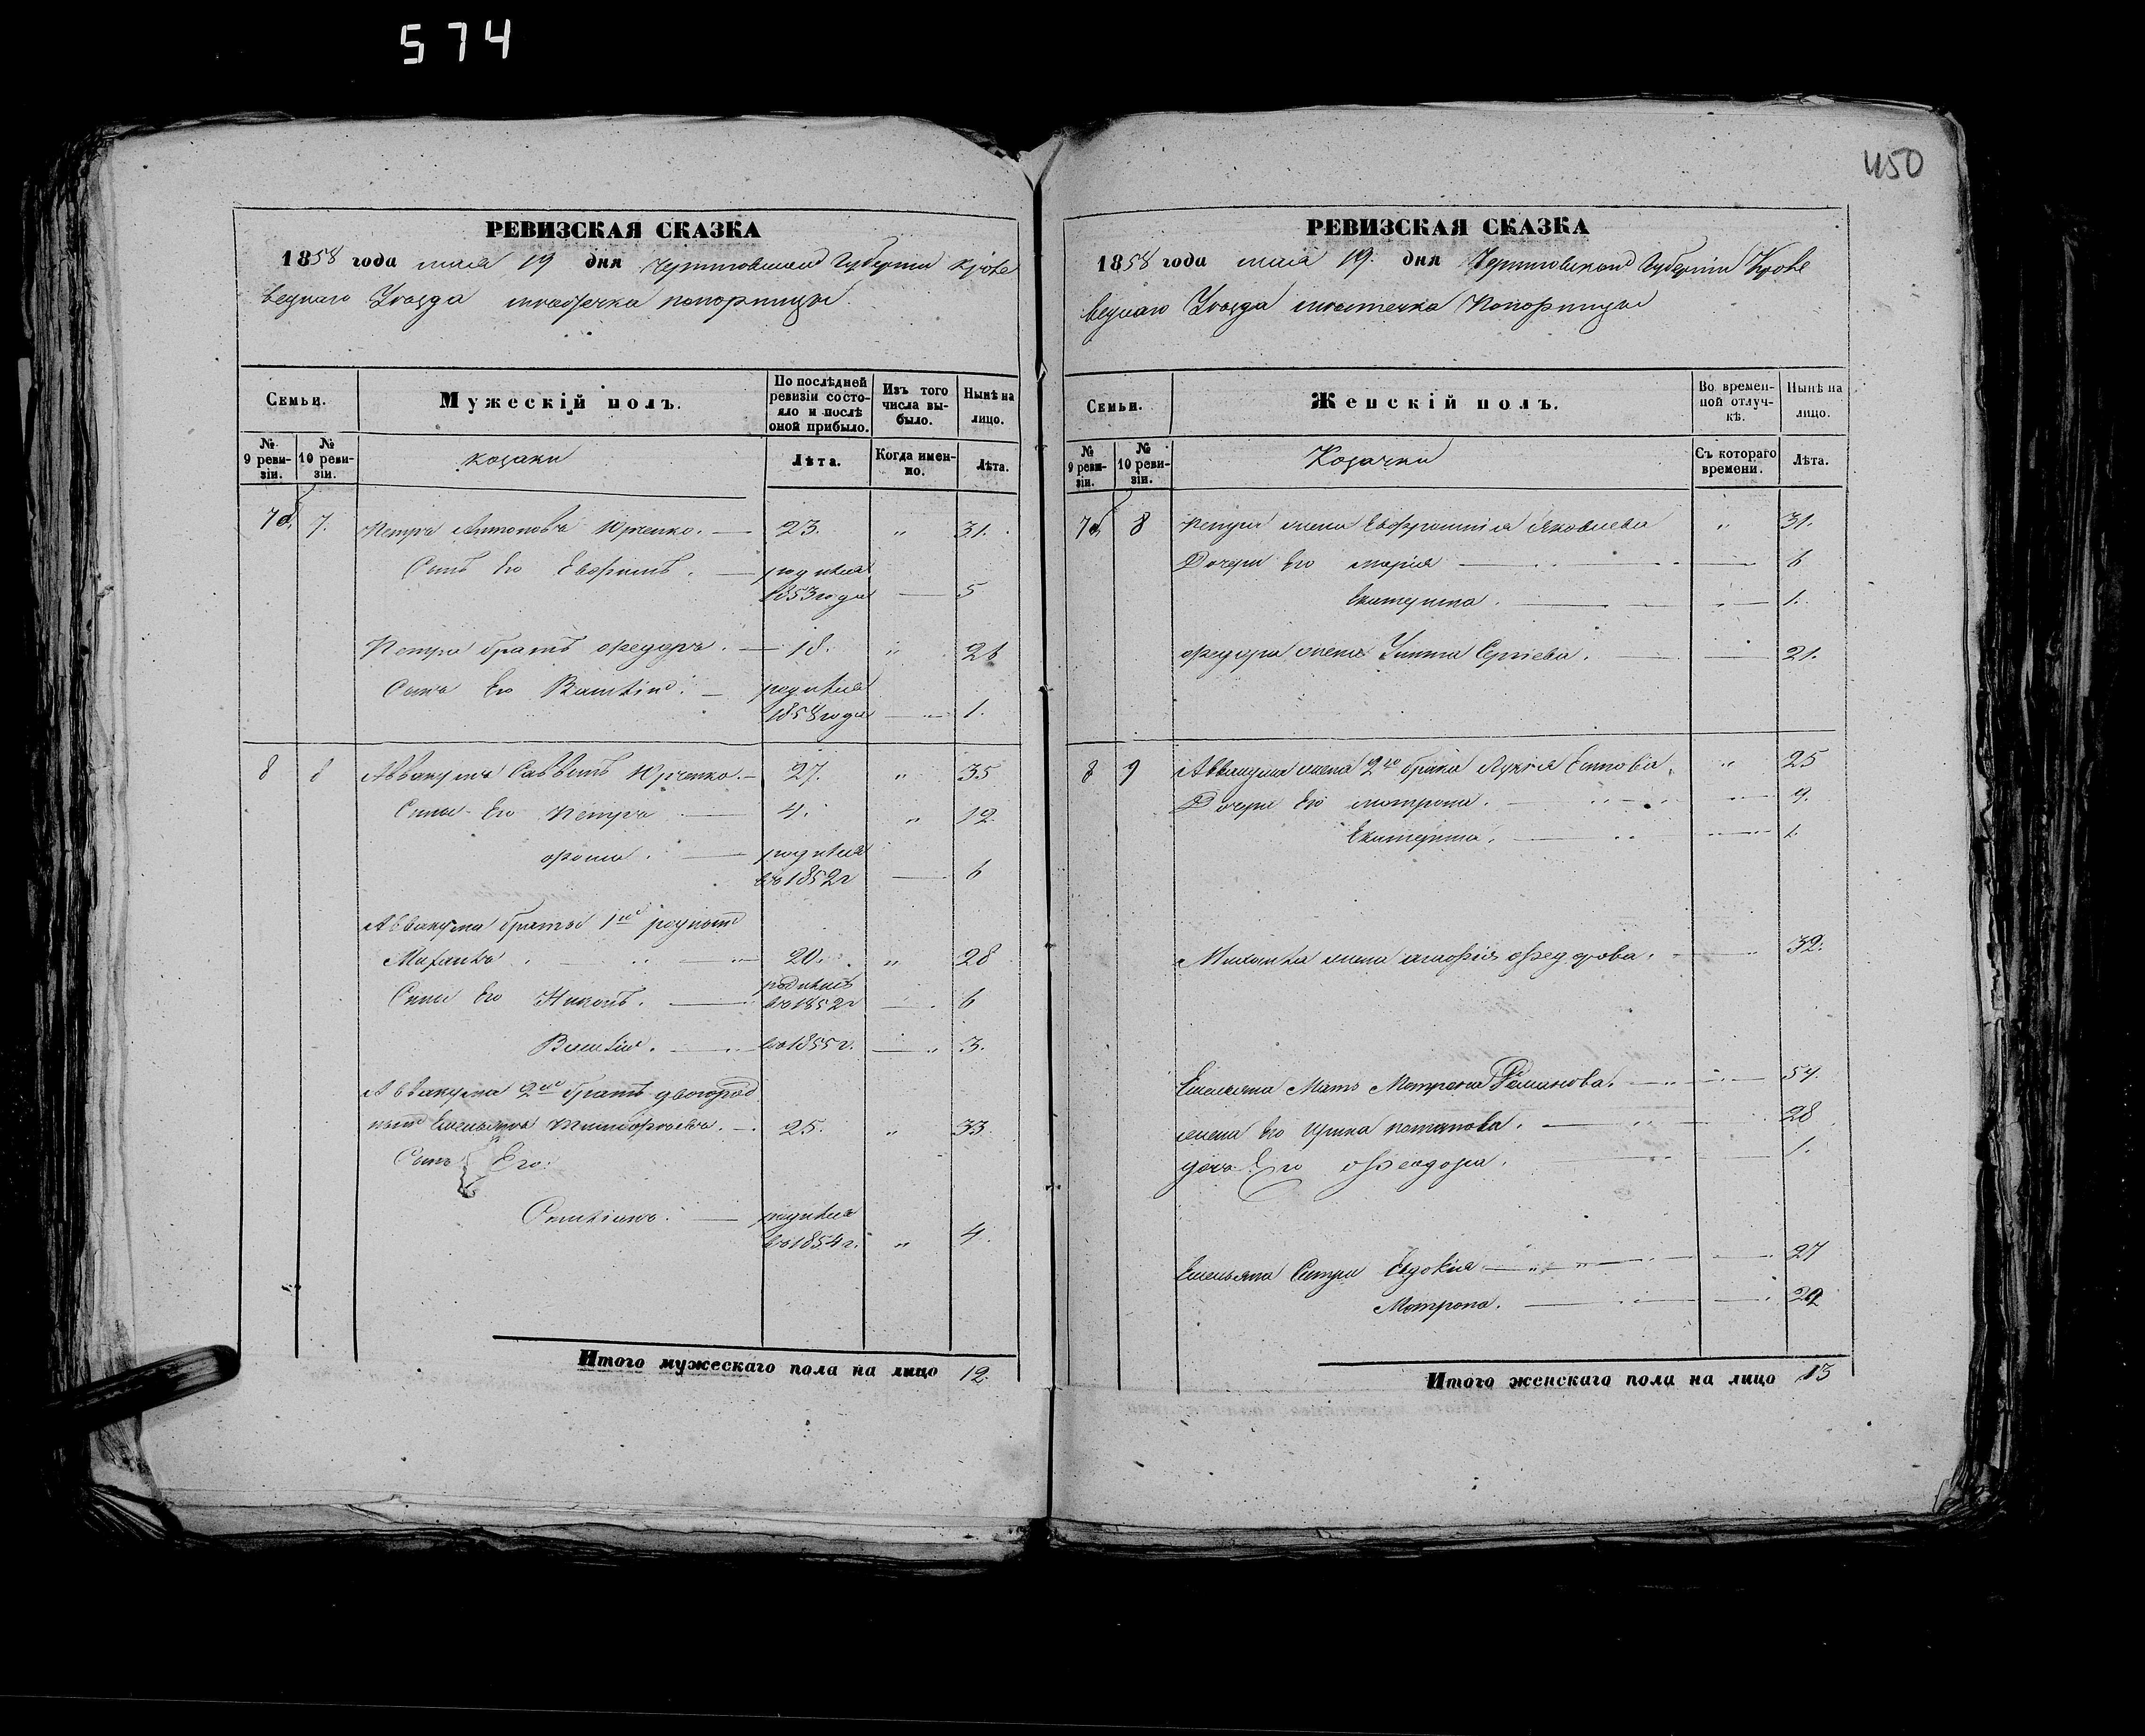 574
450
РЕВИЗСКАЯ СКАЗКА
1858 года мая 19 дня Черниговской Губерніи Кроле
вецкаго Уѣзда мѣстечка Понорницы
Семьи.
Мужескій полъ.
По послѣдней ревизіи состояло и послѣ оной прибыло.
Изъ того числа выбыло.
Нынѣ на лицо.
№ 9 ревизіи.
№ 10 ревизіи.
козаки
Лѣта.
Когда именно.
Лѣта.
7 7. Петръ Антоновъ Юрченко. 23. " 31.
Сынъ Его Евфимъ. родился
1853 года 5
Петра братъ Федоръ. 18. " 26
Сынъ Его Василій. родился
1858 года 1.
8 8 Аввакумъ Саввинъ Юрченко. 27. " 35
Сыны Его Петръ 4. " 12
Фома. родился
въ 1852 г 6
Аввакума братья 1й родной
20. " 28
Сыны Его родились
въ 1852 г 6
Василій. въ 1855 г. " 3.
Аввакума 2й братъ двоюрод
ный Емельянъ Тимофѣевъ. 25. " 33
Сынъ Его:
родился
въ 1854 г. " 4.
Итого мужескаго пола на лицо 12.
РЕВИЗСКАЯ СКАЗКА
1858 года мая 19. дня Черниговской Губерніи Кроле
вецкаго Уѣзда мѣстечка Понорницы
Семьи.
Женскій полъ.
Во временной отлучкѣ.
Нынѣ на лицо.
№ 9 ревизіи.
№ 10 ревизіи.
Козачки
Съ котораго времени.
Лѣта.
7 8 Петра жена Евфросинія Яковлева " 31.
Дочери Его Марія 6
Екатерина. 1.
Федора жена Улита Сергіева. 21.
8 9 Аввакума жена 2го брака Лукія " 25
Дочери Его Мотрона. 9.
Екатерина. 1.
жена Федорова. 32.
Емельяна Мать Мотрона Романова. 57.
жена Его Ирина Потапова. 28
дочь Его Феодора. 1.
Емельяна Сестры Евдокия 27
Мотрона.
Итого женскаго пола на лицо 13